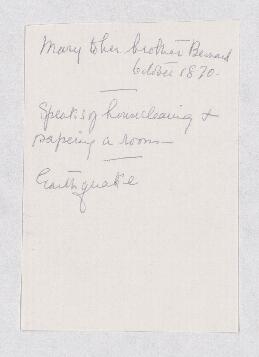 Mary to her brother Bernard
October 1870.
Speaks of housecleaning +
papering a room—
Earthquake